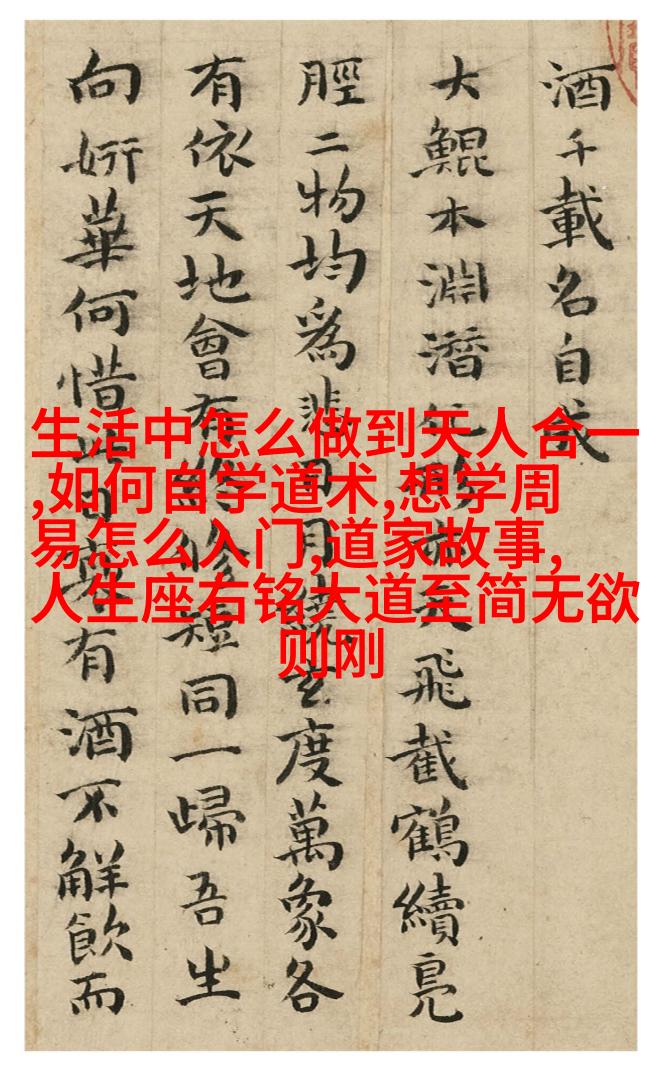 生活中怎么做到天人合一
,如何自学道术,想学周
易怎么入门,道家故事,
人生座右铭大道至简无欲
则刚
酒千載名自
大鯤本淵潛化飛截鶴續鳧
脛二物均爲悲日月玄度萬象各
有依天地會有終修短同一歸吾生
向妍華何惜此日暮有酒不解飲而